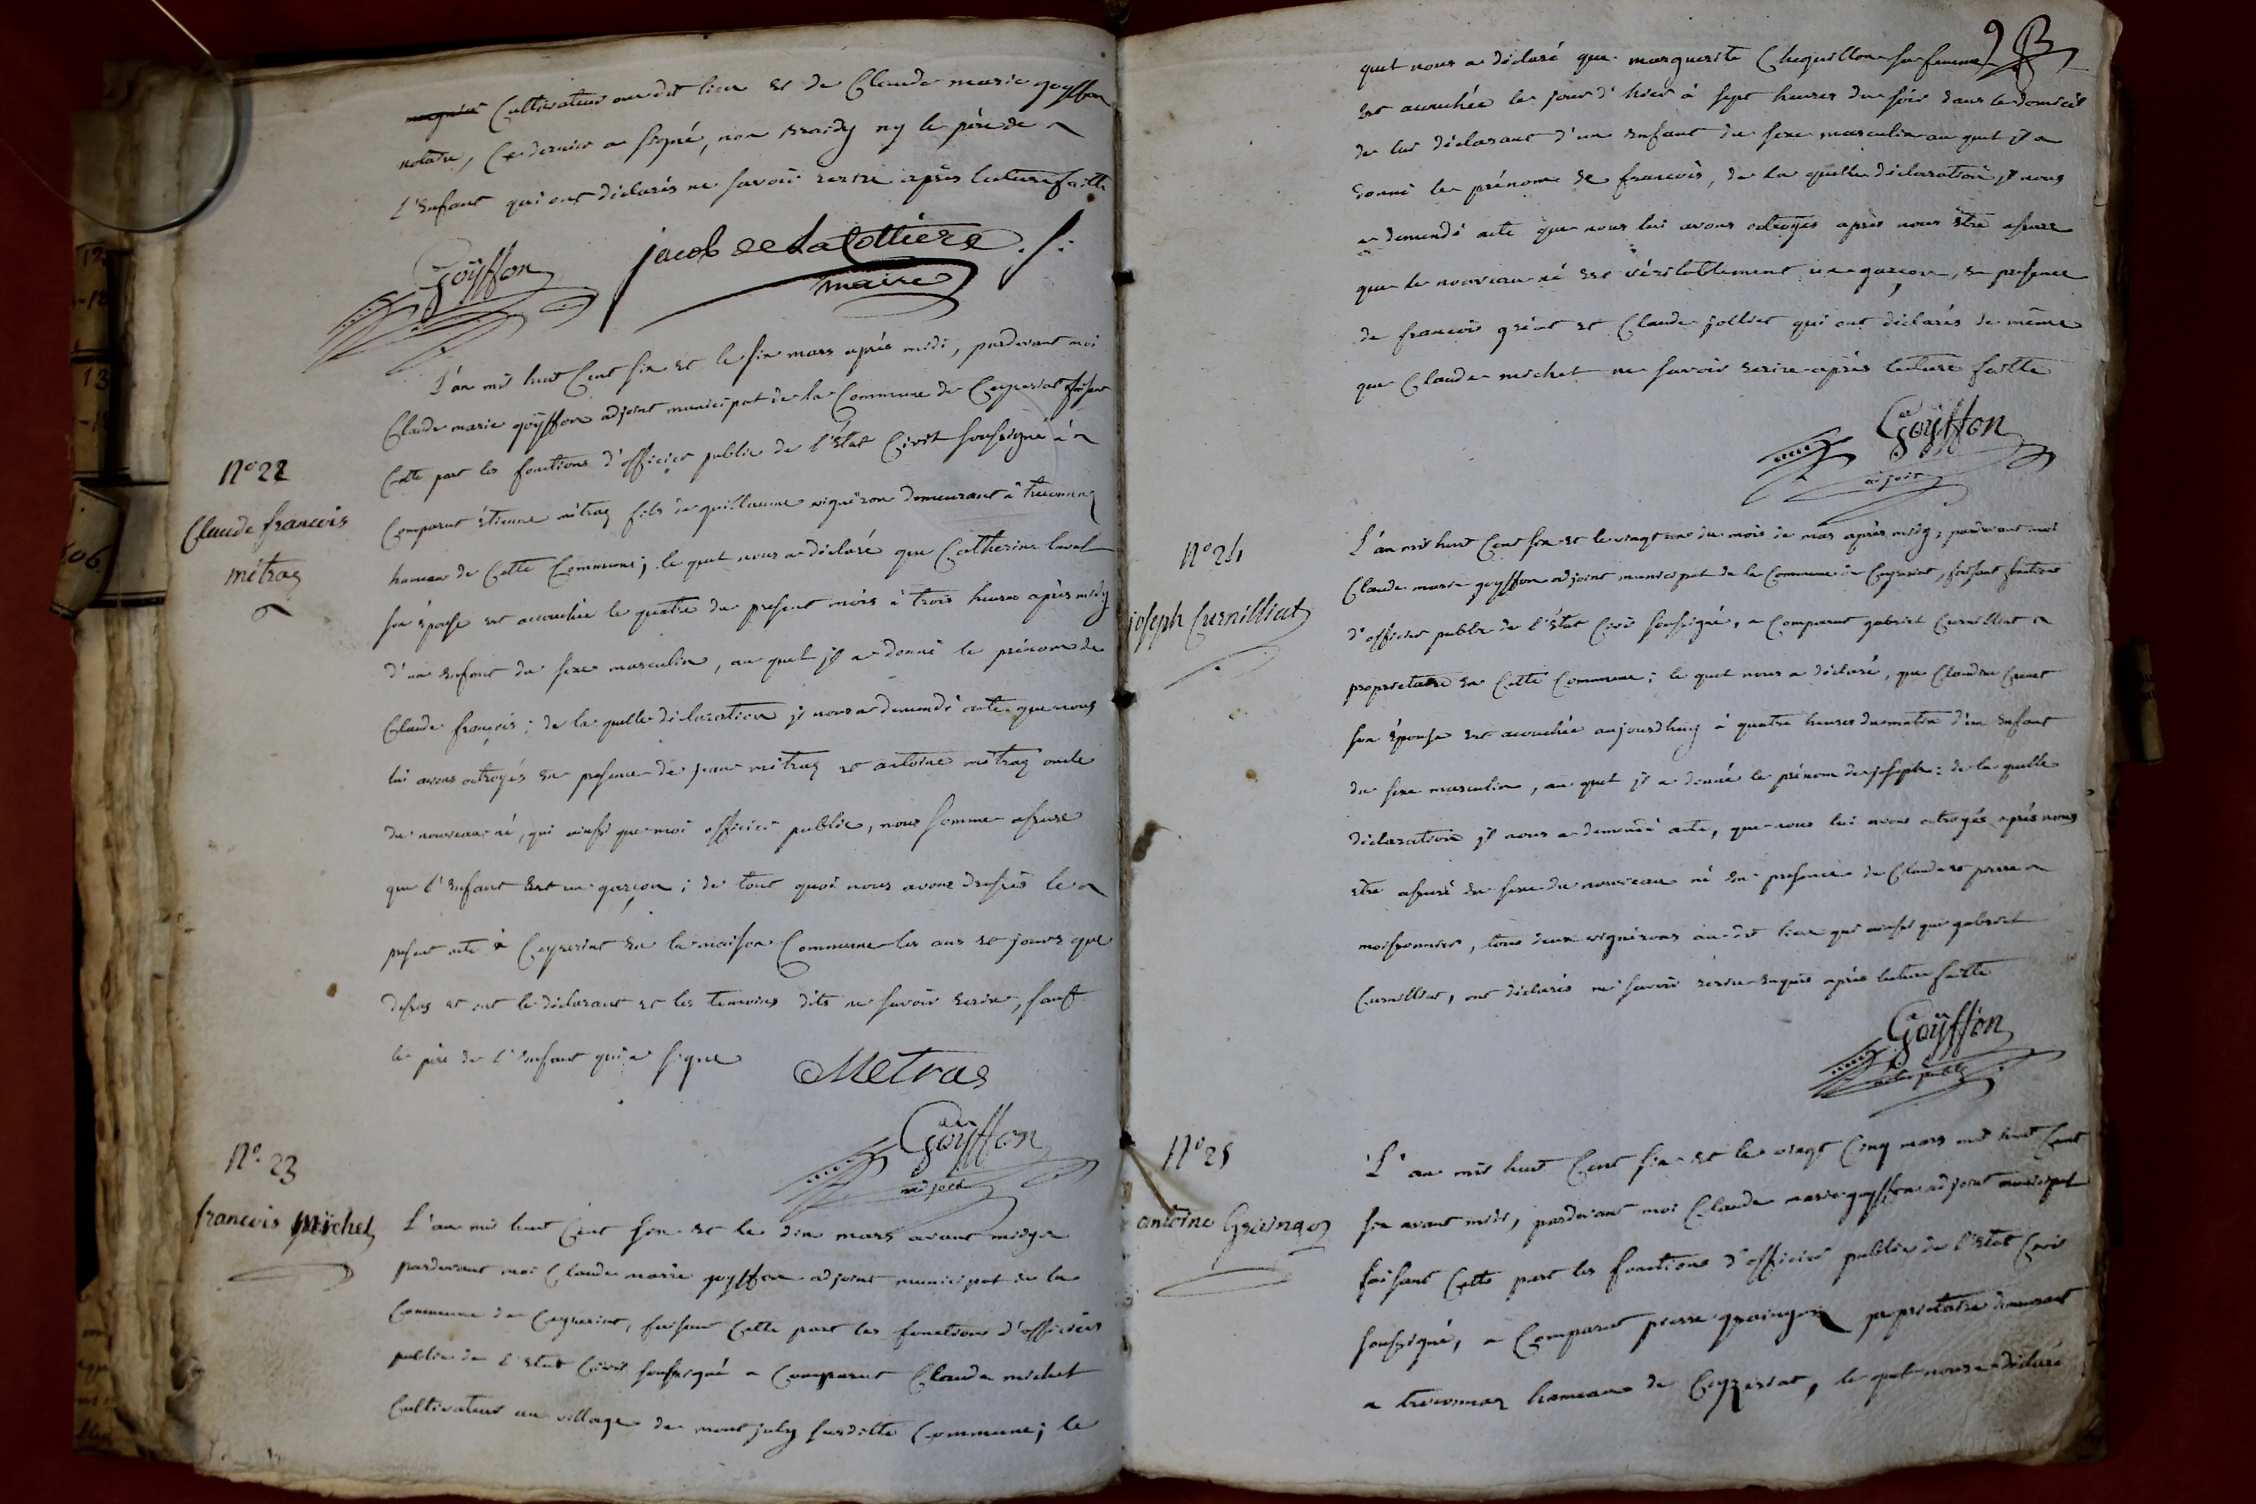 cultivateur au dit lieu et de Claude marie goÿffon
notaire, ce dernier a signé, non ny le père de
l'enfant qui ont déclarés ne savoir ecrire après lecture faitte
Goÿffon
jacob de La Cottiere
maire
L'an mil huit cent six et le six mars après midi, pardevant moi
N° 22
Claude francois
métraz
Claude marie goÿffon adjoint municipal de la Commune de Ceyzeriat faisant
cette part les fonctions d'officier public de l'état Civil soussigné à
comparut étienne métraz fils de guillaume vigneron demeurant à treconnaz
hameau de cette commune; le quel nous a déclaré que Catherine laval
son épouse est accouchée le quatre du present mois à trois heures après midy
d'un enfant du sexe masculin, au quel jl a donné le prénom de
Claude françois; de la quelle déclaration jl nous a demandé acte que nous
lui avons octroyés en presence de jean métraz et antoine métraz oncle
du nouveau né, qui ainsi que moi officier public, nous somme assuré
que l'enfant est un garçon; de tout quoi nous avons dressés le
present acte à Ceyzeriat en la maison Commune les ans et jours que
dessus et ont le déclarant et les temoins dits ne savoir ecrire, sauf
le père de l'enfant qui a signé
Metras
Goÿffon
adjoint
N° 23
francois michel
L'an mil huit cent six et le dix mars avant midy
pardevant moi Claude marie goyffon adjoint municipal de la
commune de Ceyzeriat, faisant cette part les fonctions d'officier
public de l'état Civil soussigné a comparut Claude michel
cultivateur au village de mont july susditte commune; le
9
quel nous a déclaré que marguerite Chequillon sa femme
est accouchée le jour d'hier à sept heures du soir dans le domicile
de lui déclarant d'un enfant du sexe masculin au quel jl a
donné le prénom de francois, de la quelle déclaration jl nous
a demandé acte que nous lui avons octroyés après nous être assuré
que le nouveau né est véritablement un garçon, en presence
de francois et Claude jollier qui ont déclarés de même
que Claude michel ne savoir ecrire après lecture faitte
Goÿffon
adjoint
N° 24
joseph Curnilliat
L'an mil huit cent six et le vingt un du mois de mars après midy, pardevant moi
Claude marie goyffon adjoint municipal de la commune de Ceyzeriat, faisant fonctions
d'officier public de l'état Civil soussigné, a comparut gabriel Curnilliat
proprietaire en cette commune; le quel nous a déclaré, que Claudine
son épouse est accouchée aujourdhuy à quatre heures du matin d'un enfant
du sexe masculin, au quel jl a donné le prénom de joseph: de la quelle
déclaration jl nous a demandé acte, que nous lui avons octroyés après nous
être assuré du sexe du nouveau né en presence de Claude et pierre
moissonnier, tous deux vignerons au dit lieu qui ainsi que gabriel
Curnilliat, ont déclarés ne savoir ecrire enquis après lecture faitte
Goÿffon
N° 25
antoine Graingeo
L'an mil huit cent six et le vingt cinq mars mil huit cent
six avant midi, pardevant moi Claude marie goyffon adjoint municipal
faisant cette part les fonctions d'officier public de l'état Civil
soussigné, a comparut pierre proprietaire demeurant
a treconnaz hameau de Ceyzeriat, le quel nous a déclaré